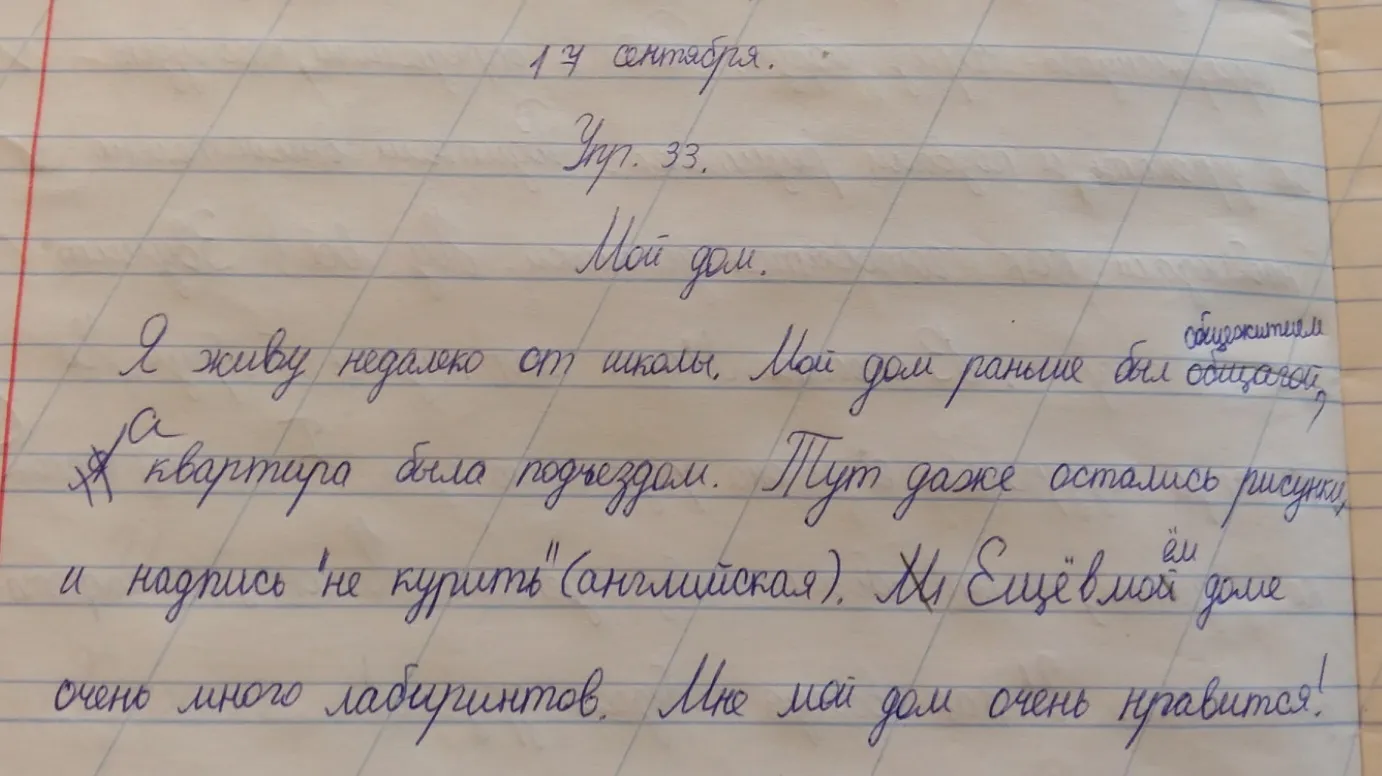 17 сентября.
Упр. 33.
Мой дом.
общежитием
Я живу недалеко от школы. Мой дом раньше был общагой,
а квартира была подъездом. Тут даже остались рисунки,
и надпись "не курить" (английская). Ещё в моём доме
очень много лабиринтов. Мне мой дом очень нравится!